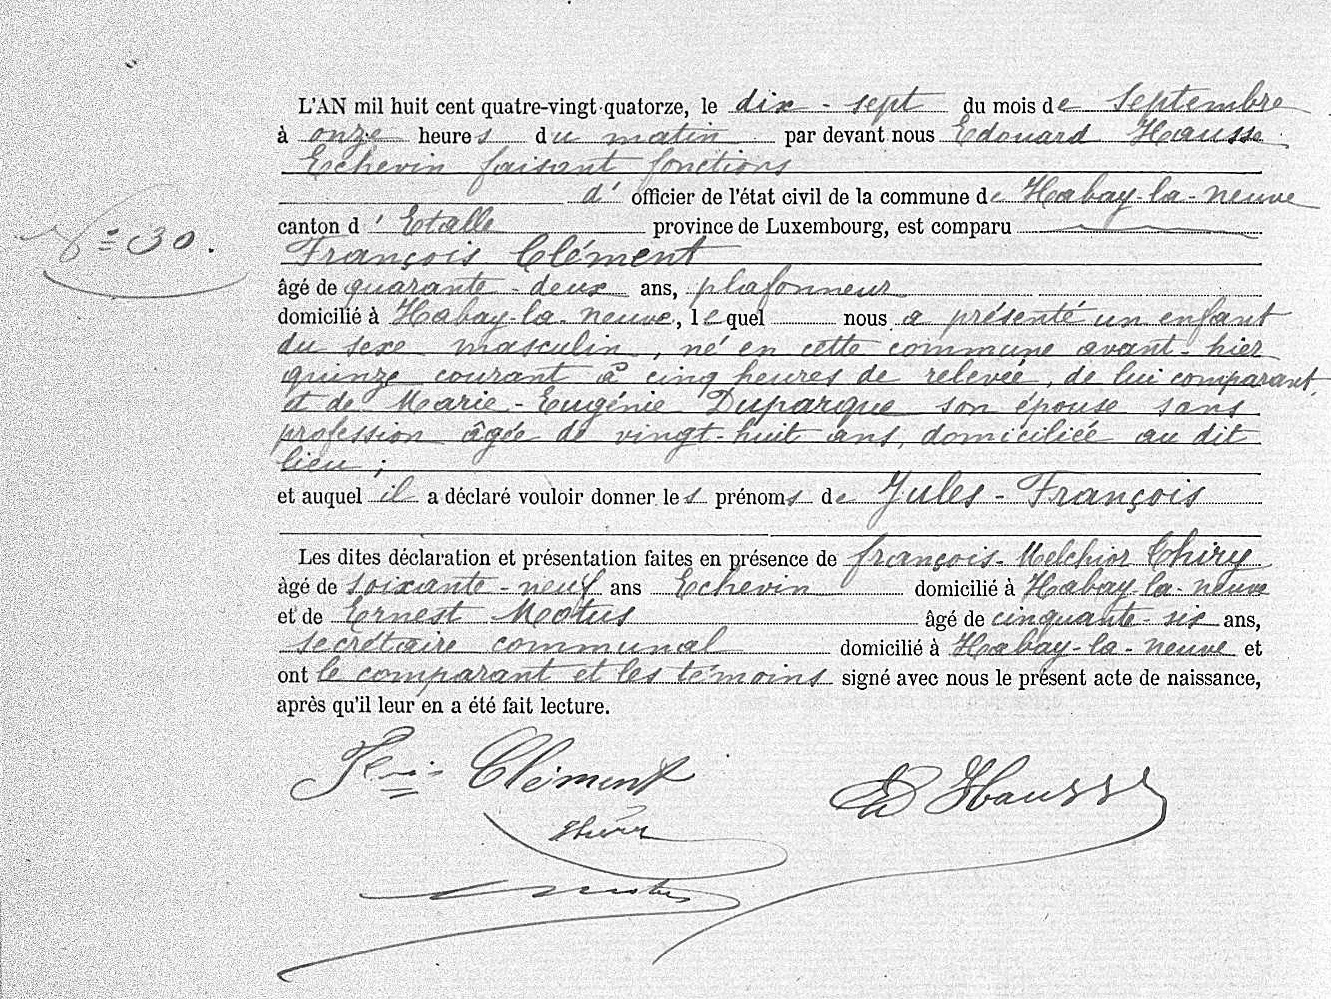 L'AN mil huit cent quatre-vingt-quatorze, le dix-sept du mois de Septembre
à onze heures du matin par devant nous Edouard Hausse
Echevin faisant fonctions
d' officier de l'état civil de la commune de Habay-la-neuve
N° 30.
canton d'Etalle province de Luxembourg, est comparu
François Clément
âgé de quarante-deux ans, plafonneur
domicilié à Habay-la-neuve, lequel nous a présenté un enfant
du sexe masculin, né en cette commune avant-hier
quinze courant à cinq heures de relevée, de lui comparant
et de Marie-Eugénie Duparque son épouse sans
profession âgée de vingt-huit ans, domiciliée au dit
lieu ;
et auquel il a déclaré vouloir donner les prénoms de Jules-François
Les dites déclaration et présentation faites en présence de françois-Melchior Thiry
âgé de soixante-neuf ans Echevin domicilié à Habay-la-neuve
et de Ernest Motus âgé de cinquante-six ans,
secrétaire communal domicilié à Habay-la-neuve et
ont le comparant et les témoins signé avec nous le présent acte de naissance,
après qu'il leur en a été fait lecture.
Clément
Ed Hausse
Thiry